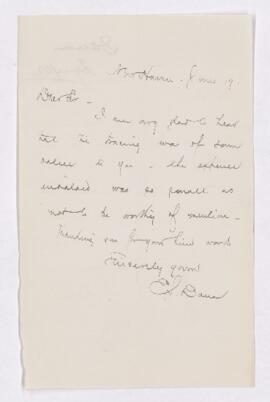 New Haven - June 19
Dear Sir -
I am very glad to hear
that the tracing was of some
value to you - the expense
entailed was so small as
not to be worthy of mention -
Thanking you for your kind words
Sincerely yours
Dana